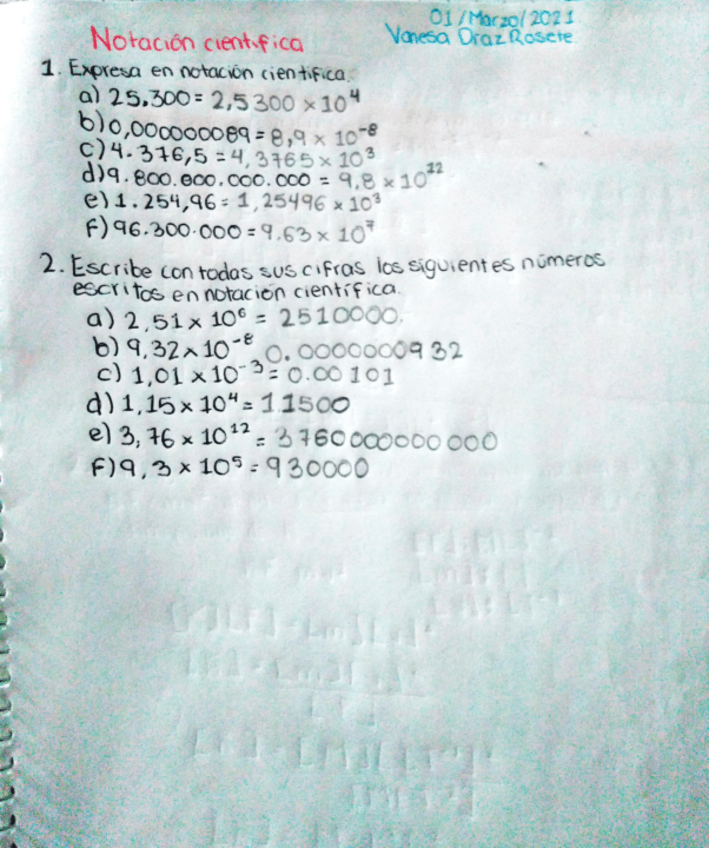 01/Marzo/2021
Notación científica
Vanesa Díaz Rosete
1. Expresa en notación científica.
a) 25.300 = 2,5300 × 10⁴
b) 0,000000089 = 8,9 × 10⁻⁸
c) 4.376,5 = 4,3765 × 10³
d) 9.800.000.000.000 = 9,8 × 10¹²
e) 1.254,96 = 1,25496 × 10³
f) 96.300.000 = 9.63 × 10⁷
2. Escribe con todas sus cifras los siguientes números
escritos en notación científica.
a) 2,51 × 10⁶ = 2510000.
b) 9,32 × 10⁻⁸ 0.0000000932
c) 1,01 × 10⁻³ = 0.00101
d) 1,15 × 10⁴ = 11500
e) 3,76 × 10¹² = 3760000000000
f) 9,3 × 10⁵ = 930000